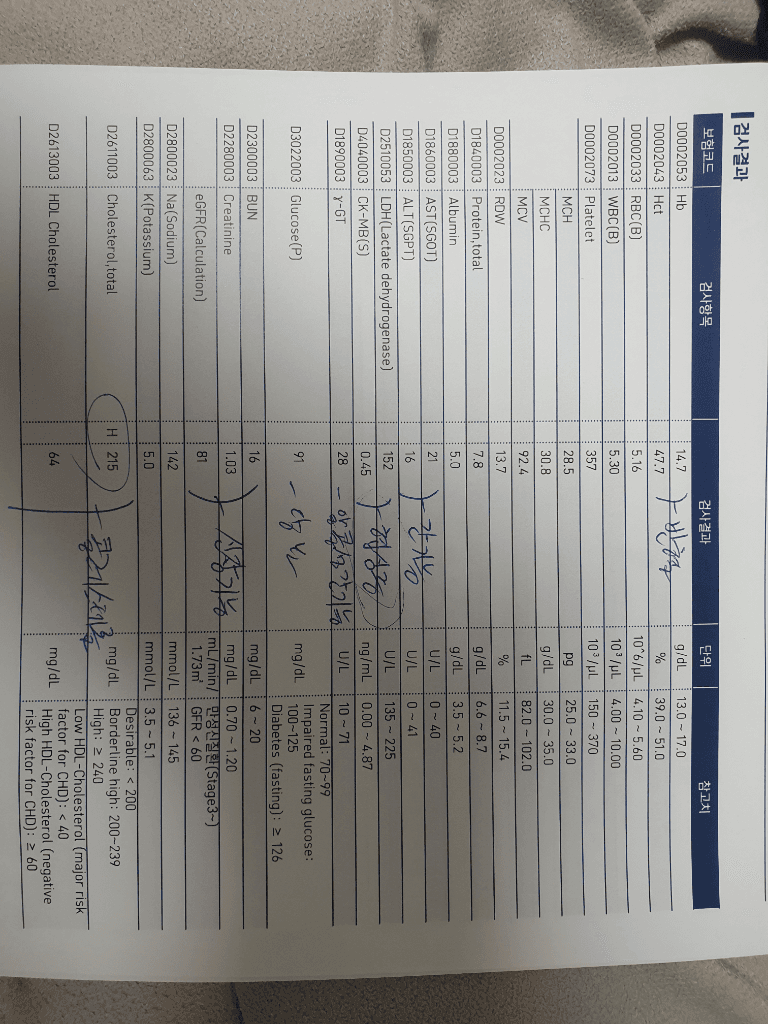 검사결과
보험코드 검사항목 검사결과 단위 참고치
D0002053 Hb 14.7 g/dL 13.0 ~ 17.0
D0002043 Hct 47.7 ) - 빈혈 % 39.0 ~ 51.0
D0002033 RBC(B) 5.16 10^6/µL 4.10 ~ 5.60
D0002013 WBC(B) 5.30 10³/µL 4.00 ~ 10.00
D0002073 Platelet 357 10³/µL 150 ~ 370
MCH 28.5 pg 25.0 ~ 33.0
MCHC 30.8 g/dL 30.0 ~ 35.0
MCV 92.4 fL 82.0 ~ 102.0
D0002023 RDW 13.7 % 11.5 ~ 15.4
D1840003 Protein,total 7.8 g/dL 6.6 ~ 8.7
D1880003 Albumin 5.0 g/dL 3.5 ~ 5.2
D1860003 AST(SGOT) 21 U/L 0 ~ 40
D1850003 ALT(SGPT) 16 ) - 간기능 U/L 0 ~ 41
D2510053 LDH(Lactate dehydrogenase) 152 U/L 135 ~ 225
D4040003 CK-MB(S) 0.45 ng/mL 0.00 ~ 4.87
D1890003 γ-GT 28 - 알콜성간기능 U/L 10 ~ 71
D3022003 Glucose(P) 91 - 당뇨 mg/dL Normal: 70~99
Impaired fasting glucose:
100~125
Diabetes (fasting): ≥ 126
D2300003 BUN 16 mg/dL 6 ~ 20
D2280003 Creatinine 1.03 ) - 신장기능 mg/dL 0.70 ~ 1.20
eGFR(Calculation) 81 mL/min/ 만성신질환(Stage3~)
1.73㎡ GFR < 60
D2800023 Na(Sodium) 142 mmol/L 136 ~ 145
D2800063 K(Potassium) 5.0 mmol/L 3.5 ~ 5.1
D2611003 Cholesterol,total H 215 ) - 콜레스테롤 mg/dL Desirable: < 200
Borderline high: 200~239
High: ≥ 240
D2613003 HDL Cholesterol 64 mg/dL Low HDL-Cholesterol (major risk
factor for CHD): < 40
High HDL-Cholesterol (negative
risk factor for CHD): ≥ 60